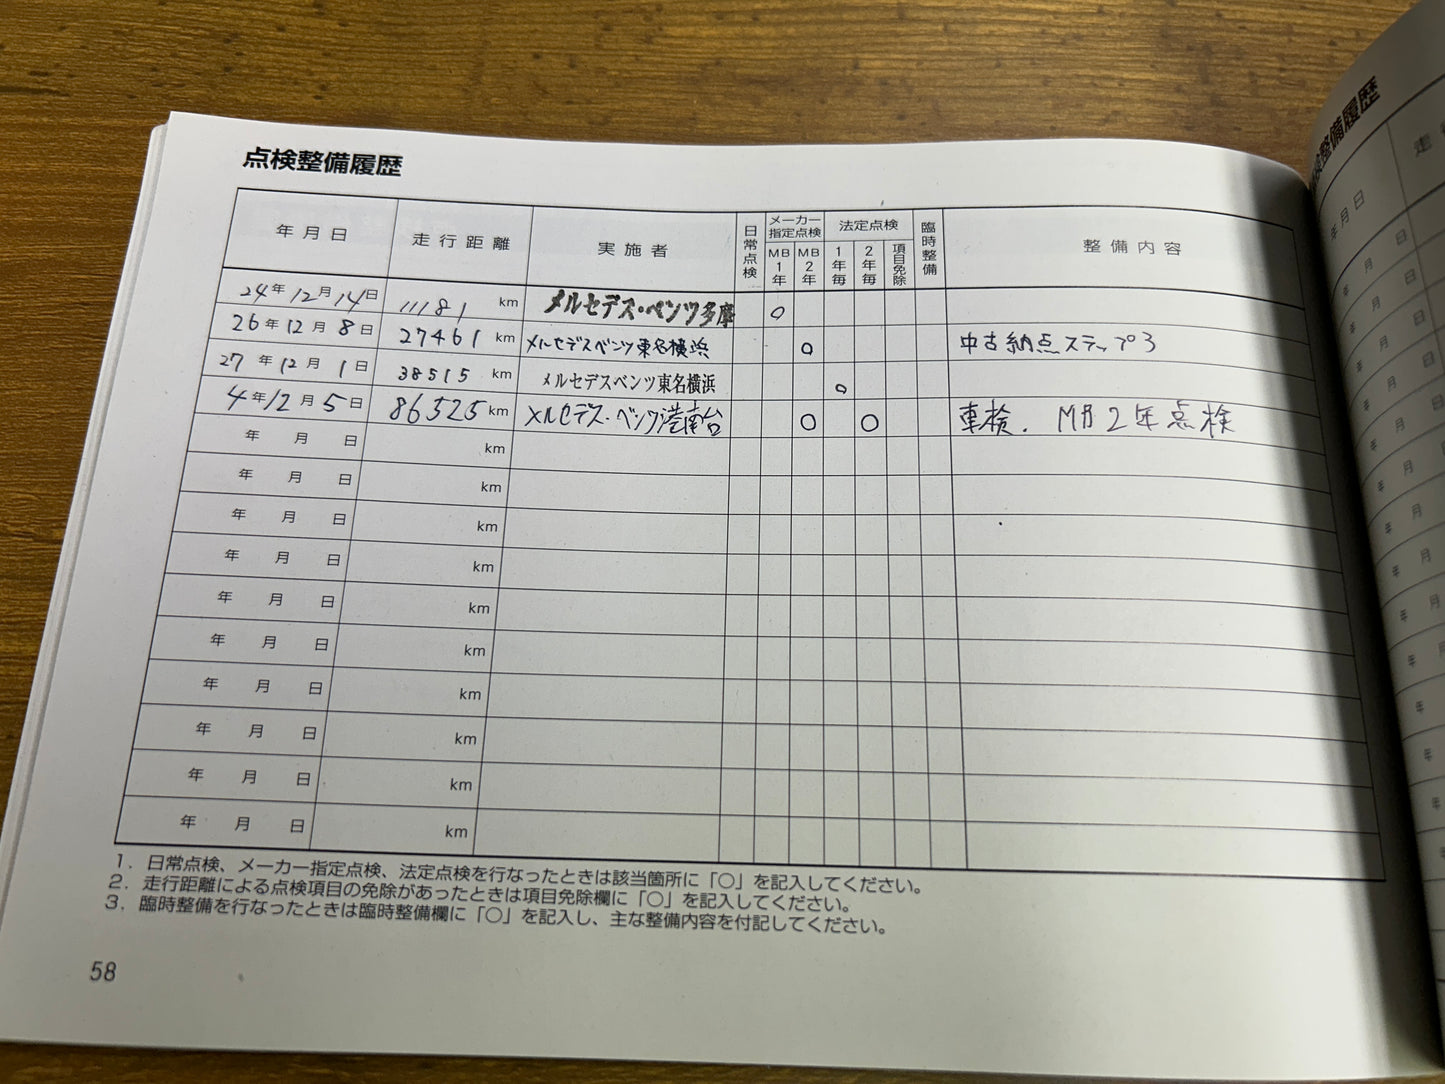 点検整備履歴
年月日 走行距離 実施者 日常点検 メーカー指定点検 MB1年 MB2年 法定点検 1年毎 2年毎 項目免除 臨時整備 整備内容
24年12月14日 11181 km メルセデス・ベンツ多摩 ○
26年12月8日 27461 km メルセデスベンツ東名横浜 ○ 中古納点ステップ3
27年12月1日 38515 km メルセデスベンツ東名横浜 ○
4年12月5日 86525 km メルセデス・ベンツ港南台 ○ ○ 車検. MB2年点検
年 月 日 km
年 月 日 km
年 月 日 km
年 月 日 km
年 月 日 km
年 月 日 km
年 月 日 km
年 月 日 km
年 月 日 km
年 月 日 km
1. 日常点検、メーカー指定点検、法定点検を行なったときは該当箇所に「○」を記入してください。
2. 走行距離による点検項目の免除があったときは項目免除欄に「○」を記入してください。
3. 臨時整備を行なったときは臨時整備欄に「○」を記入し、主な整備内容を付記してください。
58